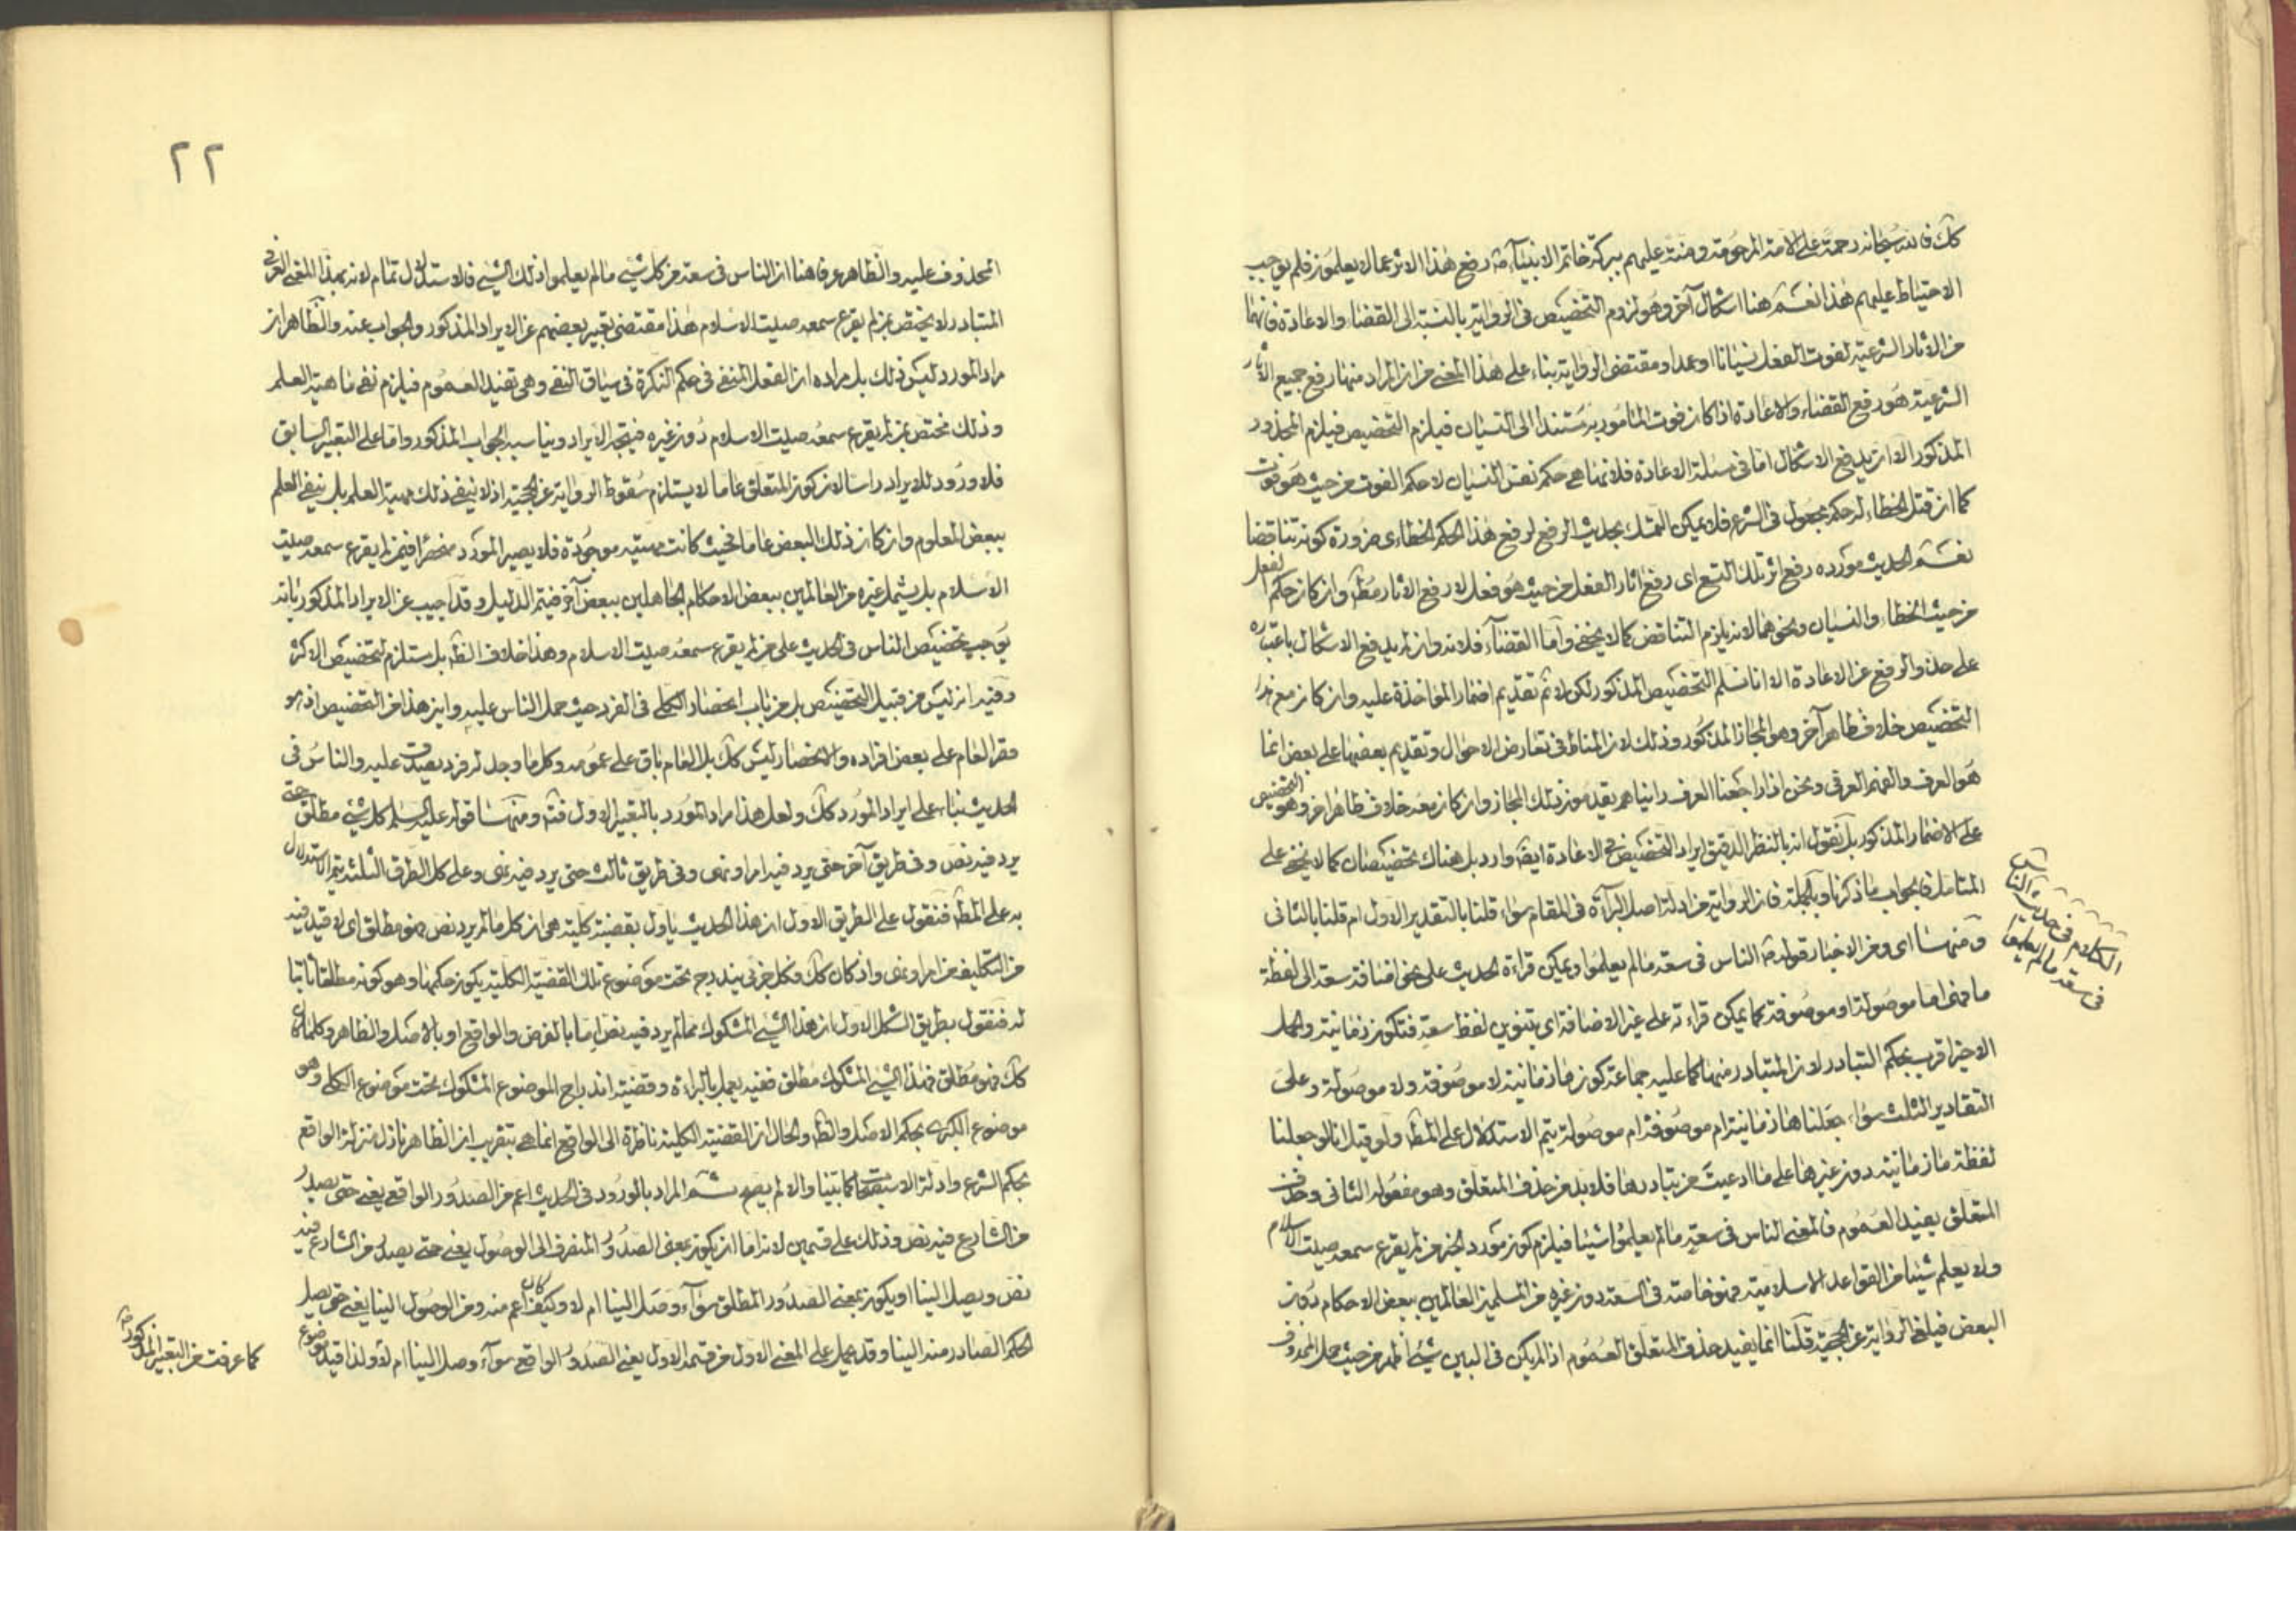 كك فالله سبحانه رحمة على الامة المرحومة ومنة عليهم ببركة خاتم الانبياء ص رفع هذا الاثر عما لا يعلمون فلم يوجب
الاحتياط عليهم هذا نعم هنا اشكال آخر وهو لزوم التخصيص فى الرواية بالنسبة الى القضاء والاعادة فانهما
من الاثار الشرعية لفوت الفعل نسيانا او عمدا ومقتضى الرواية بناء على هذا المعنى من ان المراد منها رفع جميع الاثار
الشرعية هو رفع القضاء والاعادة اذا كان فوت المامور به مستندا الى النسيان فيلزم التخصيص فيلزم المحذور
المذكور الا ان يدفع الاشكال اما فى مسئلة الاعادة فلانها هى حكم نفس النسيان لا حكم الفوت من حيث هو فوت
كما ان قتل الخطاء له حكم مجعول فى الشرع فلا يمكن التمسك بحديث الرفع لرفع هذا الحكم الخطائى ضرورة كونه تناقضا
نعم الحديث مورده رفع اثر تلك التسع اى رفع اثار الفعل من حيث هو فعل لا رفع الاثار مط وان كان حكم الفعل
من حيث الخطاء والنسيان ونحوهما لانه يلزم التناقض كما لا يخفى واما القضاء فلانه وان لم يدفع الاشكال باعتباره
على حذو الرفع عن الاعادة الا انا نسلم التخصيص المذكور لكن لا ثم تقديم اضمار المؤاخذة عليه وان كان مع هذا
التخصيص خلاف ظاهر آخر وهو المجاز المذكور وذلك لان المناط فى تعارض الاحوال وتقديم بعضها على بعض انما
هو العرف والفهم العرفى ونحن اذا راجعنا العرف رايناهم يقدمون ذلك المجاز وان كان معه خلاف ظاهر اخر وهو التخصيص
على الاضمار المذكور بل نقول انه بالنظر الدقيق ايراد التخصيص فى الاعادة ايضا وارد بل هناك تخصيصان كما لا يخفى على
المتامل فى جواب ما ذكرنا وبالجملة فان الرواية من ادلة اصل البرائة فى المقام سواء قلنا بالتقدير الاول ام قلنا بالثانى
ومنها اى ومن الاخبار قوله ص الناس فى سعة ما لم يعلموا ويمكن قراءة الحديث على نحو اضافة سعة الى لفظة
ما فهى اما موصولة او موصوفة كما يمكن قراءته على غير الاضافة اى بتنوين لفظ سعة فتكون زمانية والحمل
الاخير اقرب بحكم التبادر لان المتبادر منها كما عليه جماعة كون ما زمانية لا موصوفة ولا موصولة وعلى
التقادير الثلث سواء جعلنا ما زمانية ام موصوفة ام موصولة يتم الاستدلال على المط ولو قيل انا لو جعلنا
لفظة ما زمانية دون غيرها على ما ادعيت من تبادرها فلابد من حذف المتعلق وهو مفعوله الثانى وحذف
المتعلق يفيد العموم فالمعنى الناس فى سعة ما لم يعلموا شيئا فيلزم كون مورد الخبر من لم يقرع سمعه صيت الاسلام
ولا يعلم شيئا من القواعد الاسلامية فهو خاصة فى السعة دون غيره من المسلمين العالمين ببعض الاحكام دون
البعض فيلغى الرواية عن الحجية قلنا انما يفيد حذف المتعلق العموم اذا لم يكن فى البين شىء اظهر من حيث حمل المحذوف
الكلام فى حديث الناس
فى سعة ما لم يعلموا
٢٢
المحذوف عليه والظاهر عرفا هنا ان الناس فى سعة من كل شىء ما لم يعلموا ذلك الشىء فلاستدلال تمام لانه بهذا المعنى العرفى
المتبادر لا يختص بمن لم يقرع سمعه صيت الاسلام هذا مقتضى تعبير بعضهم عن الايراد المذكور والجواب عنه والظاهر ان
مراد المورد ليس ذلك بل مراده ان الفعل المنفى فى حكم النكرة فى سياق النفى وهى تفيد العموم فيلزم نفى ماهية العلم
وذلك مختص بمن لم يقرع سمعه صيت الاسلام دون غيره فيتجه الايراد ويناسبه الجواب المذكور واما على التعبير السابق
فلا ورود للايراد راسا لان كون المتعلق عاما لا يستلزم سقوط الرواية عن الحجية اذ لا ينفى ذلك مهية العلم بل ينفى العلم
ببعض المعلوم وان كان ذلك البعض عاما فحيث كانت مهيته موجودة فلا يصير المورد منحصرا فيمن لم يقرع سمعه صيت
الاسلام بل يشمل غيره من العالمين ببعض الاحكام الجاهلين ببعض آخر فيتم الدليل وقد اجيب عن الايراد المذكور بانه
يوجب تخصيص الناس فى الحديث على من لم يقرع سمعه صيت الاسلام وهذا خلاف الظ بل مستلزم لتخصيص الاكثر
وفيه انه ليس من قبيل التخصيص بل من باب انحصار الكلى فى الفرد حيث حمل الناس عليه واين هذا من التخصيص اذ هو
قصر العام على بعض افراده والانحصار ليس كك بل العام باق على عمومه وكلما وجد له فرد يصدق عليه والناس فى
الحديث بناء على ايراد المورد كك ولعل هذا مراد المورد بالتعبير الاول فتم ومنها قوله عليه السلم كل شىء مطلق حتى
يرد فيه نص وفى طريق آخر حتى يرد فيه امر او نهى وفى طريق ثالث حتى يرد فيه نهى وعلى كل الطرق الثلثة يتم الاستدلال
به على المط فنقول على الطريق الاول ان هذا الحديث ياول بقضية كلية هى ان كل ما لم يرد نص فهو مطلق اى لا قيد فيه
من التكليف من امر او نهى واذ كان كك فكل جزئى يندرج تحت موضوع تلك القضية الكلية يكون حكمها وهو كونه مطلقا ثابتا
له فنقول بطريق الشكل الاول ان هذا الشىء المشكوك مما لم يرد فيه نص اما بالفرض والواقع او بالاصل والظاهر وكلما كان
كك فهو مطلق فهذا الشىء المشكوك مطلق ففيه يعمل بالبرائة وقضية اندراج الموضوع المشكوك تحت موضوع الكلى وهو
موضوع الكبرى بحكم الاصل والظ والحال ان القضية الكلية ناظرة الى الواقع انما هى بتقريب ان الظاهر نازل منزلة الواقع
بحكم الشرع وادلة الاستصحاب كما بينا والا لم يصح ثم المراد بالورود فى الحديث اعم من الصدور الواقعى يعنى حتى يصدر
من الشارع فيه نص وذلك على قسمين لانه اما ان يكون بمعنى الصدور المنصرف الى الوصول يعنى حتى يصدر من الشارع فيه
نص ويصل الينا او يكون بمعنى الصدور المطلق سواء وصل الينا ام لا وكيف كان اعم منه ومن الوصول الينا يعنى حتى يصل
الحكم الصادر منه الينا وقد يحمل على المعنى الاول من قسمه الاول يعنى الصدور الواقع سواء وصل الينا ام لا ولذا قيد
كما عرفت من التعبير المذكور